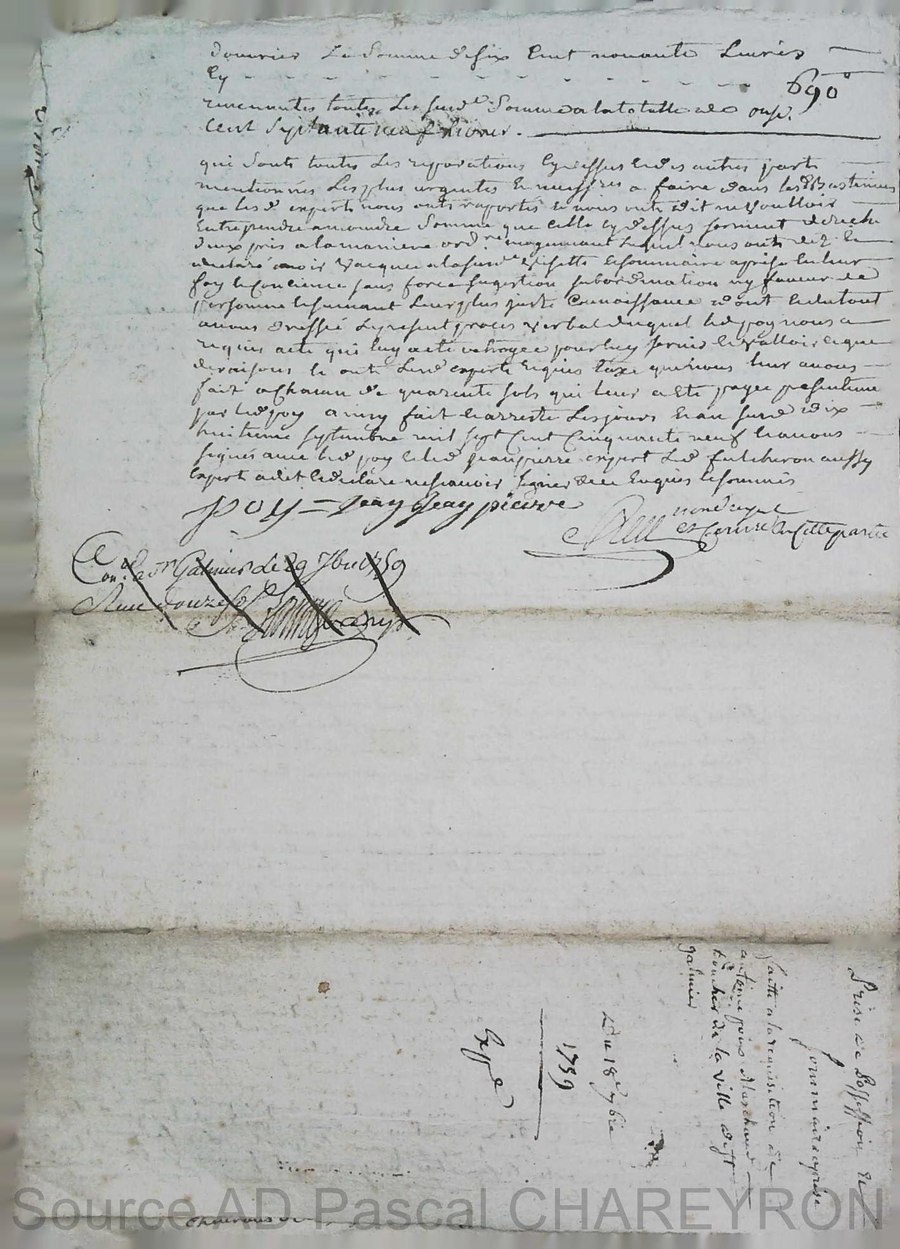 douvrier La Somme de six Cent nonante Livres
Cy 690#
revenantes toutes Les susd. Sommes a la totalle de onze
Cent septante neuf Livres.
qui sont toutes Les reparations cy dessus et des autres parts
mentionnés Les plus urgentes et necess.res a faire dans les d. Bastimens
que les d. experts nous ont raportés et nous ont dit ne vouloir
Entreprendre a moindre Somme que celle cy dessus
deux pris a la maniere ord.re moyenant Lequel nous ont dit et
declaré avoir vacque a la susd. visitte et sommaire aprise en leur
foy et Concience sans force sugestion subordination ny faveur de
personne et suivant Leur plus juste Connoissance dont et du tout
avons dressé Le present proces verbal duquel Led. poy nous a
requis acte qui luy a eté octroyé pour luy servir et valloir ce que
de raison et ont Lesd. experts requis taxe que nous leur avons
fait a Chacun de quarente sols qui leur a eté payée presentement
par led. poy ainsy fait et arresté Les jours et an susd. dix
huitieme septembre mil sept Cent Cinquante neuf et avons
signés avec led. poy et led. jean pierre expert Led. fulcheron aussy
expert a dit et declaré ne scavoir signer de ce Enquis et sommés
poy = Jean pierre
not. royal
et Comm.re en Cette partie
Con.lé a St Galmier Le 29 7bre 1759
Reçu douze sols
Prise de Possession et
sommaire aprise
faitte a la requisition de
antoine poix Marchand
boucher de la ville de st
galmier
Du 18 7bre
1759
Exp.é
Source AD Pascal CHAREYRON